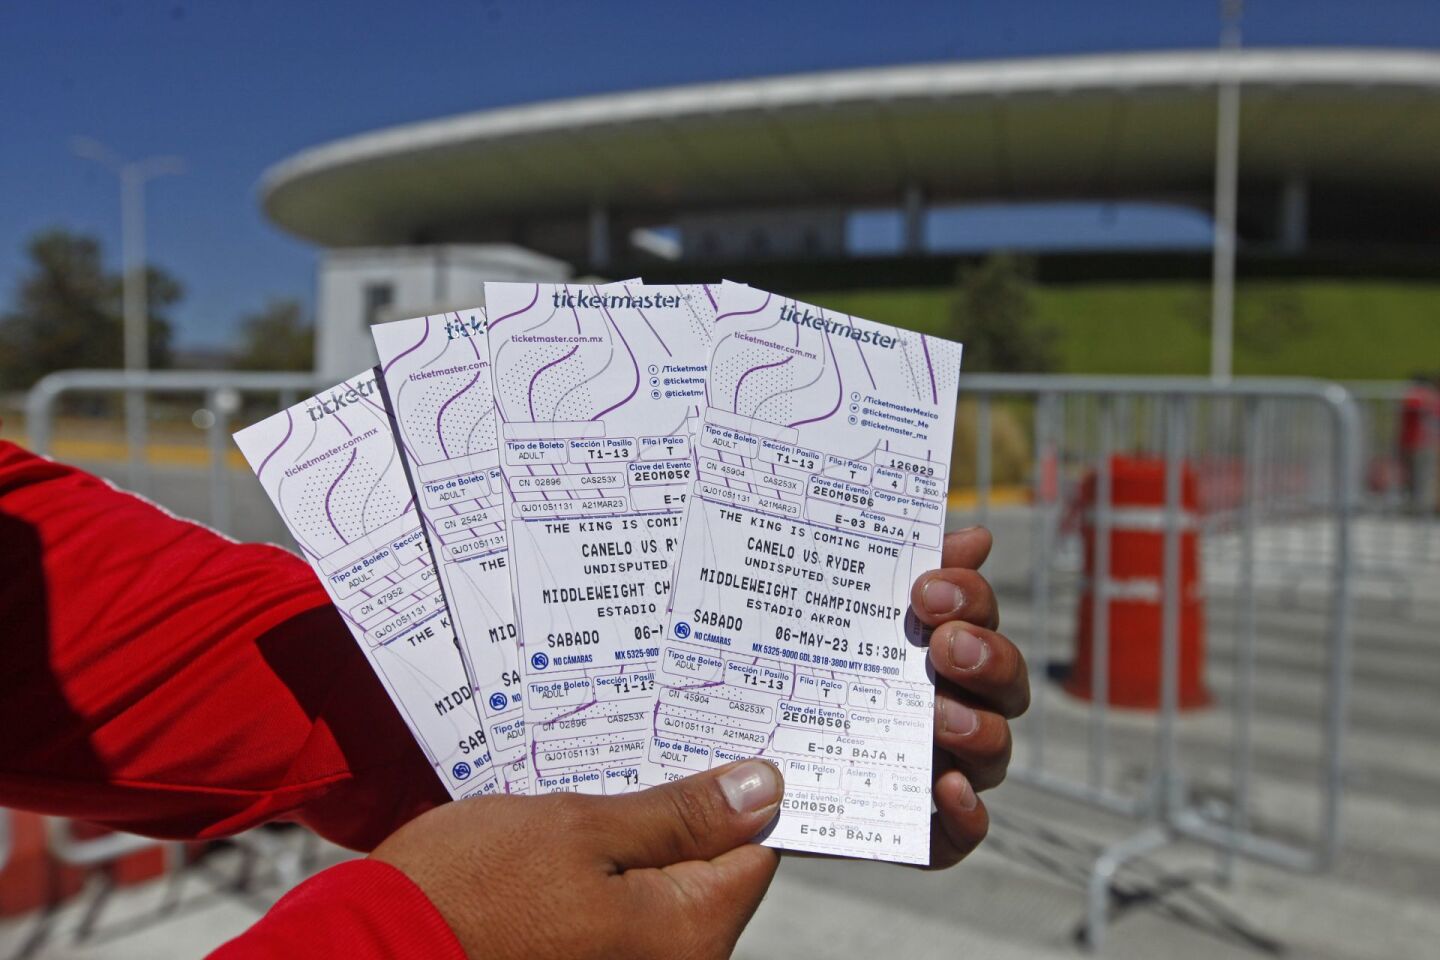 ticketmaster
ticketmaster.com.mx
Tipo de Boleto
ADULT
CN 47952
GJ01051131
THE K
MIDD
SAB
ticketmaster.com
Tipo de Boleto
ADULT
CN 25424
GJ01051131
THE
MID
SA
ticketmaster
ticketmaster.com.mx
/Ticketmast
@ticketmas
@ticketm
Tipo de Boleto Sección | Pasillo Fila | Palco
ADULT T1-13 T
CN 02896 CAS253X Clave del Evento
2EOM050
GJ01051131 A21MAR23
THE KING IS COMI
CANELO US RY
UNDISPUTED
MIDDLEWEIGHT CH
ESTADIO
SABADO 06-M
NO CÁMARAS MX 5325-9000
Tipo de Boleto Sección | Pasillo
ADULT T1-13
CN 02896 CAS253X
GJ01051131 A21MAR2
Tipo de Boleto Sección
ADULT
ticketmaster
ticketmaster.com.mx
/TicketmasterMexico
@ticketmaster_Me
@ticketmaster_mx
126029
Tipo de Boleto Sección | Pasillo Fila | Palco Asiento Precio
ADULT T1-13 T 4 $ 3500.
CN 45904 CAS253X Clave del Evento Cargo por Servicio
2EOM0506 $
GJ01051131 A21MAR23 Acceso
E-03 BAJA H
THE KING IS COMING HOME
CANELO US RYDER
UNDISPUTED SUPER
MIDDLEWEIGHT CHAMPIONSHIP
ESTADIO AKRON
SABADO 06-MAY-23 15:30H
NO CÁMARAS MX 5325-9000 GDL 3818-3800 MTY 8369-9000
Tipo de Boleto Sección | Pasillo Fila | Palco Asiento Precio
ADULT T1-13 T 4 $ 3500.0
CN 45904 CAS253X Clave del Evento Cargo por Servicio
2EOM0506 $
GJ01051131 A21MAR23 Acceso
E-03 BAJA H
Tipo de Boleto Sección Fila | Palco Asiento Precio
ADULT T 4 $ 3500.00
Evento Cargo por Servicio
EOM0506 $
Acceso
E-03 BAJA H